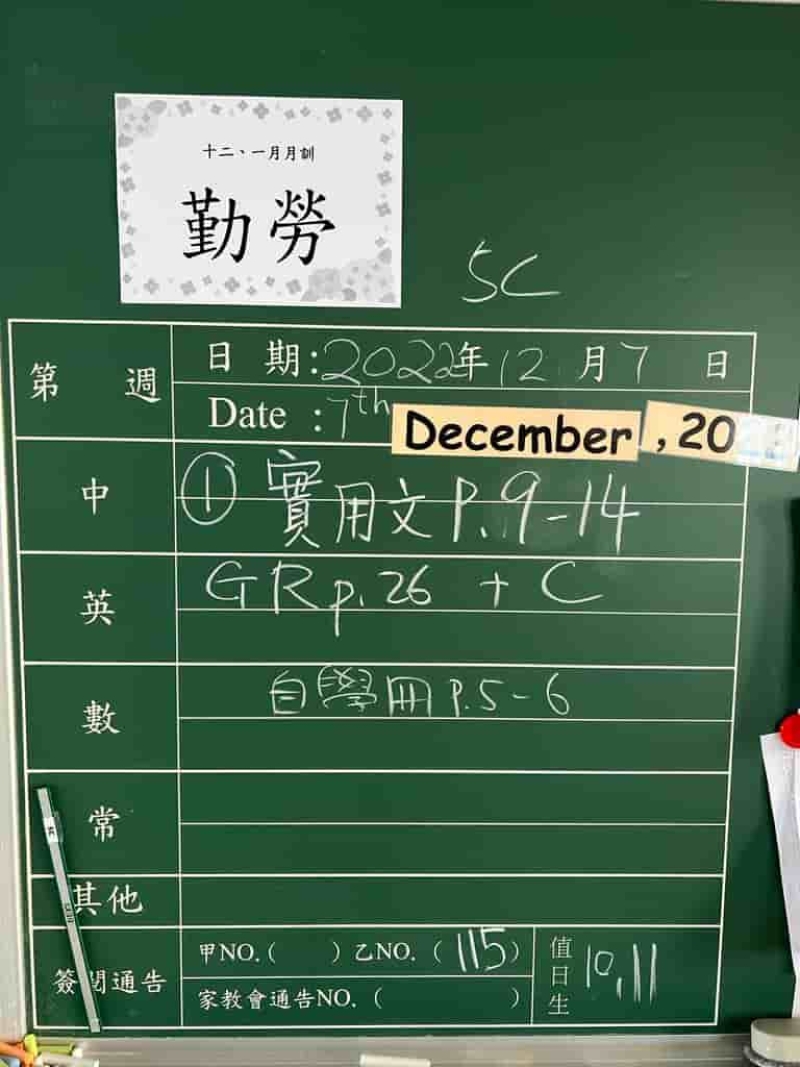 十二、一月月訓
勤勞
5C
第 週
日 期:2022年12月7日
Date :7th December, 20
中
① 實用文 P.9-14
英
GR p.26 + C
數
自學冊 P.5-6
常
其他
簽閱通告
甲NO.( )乙NO.(115)
家教會通告NO.( )
值日生
10,11